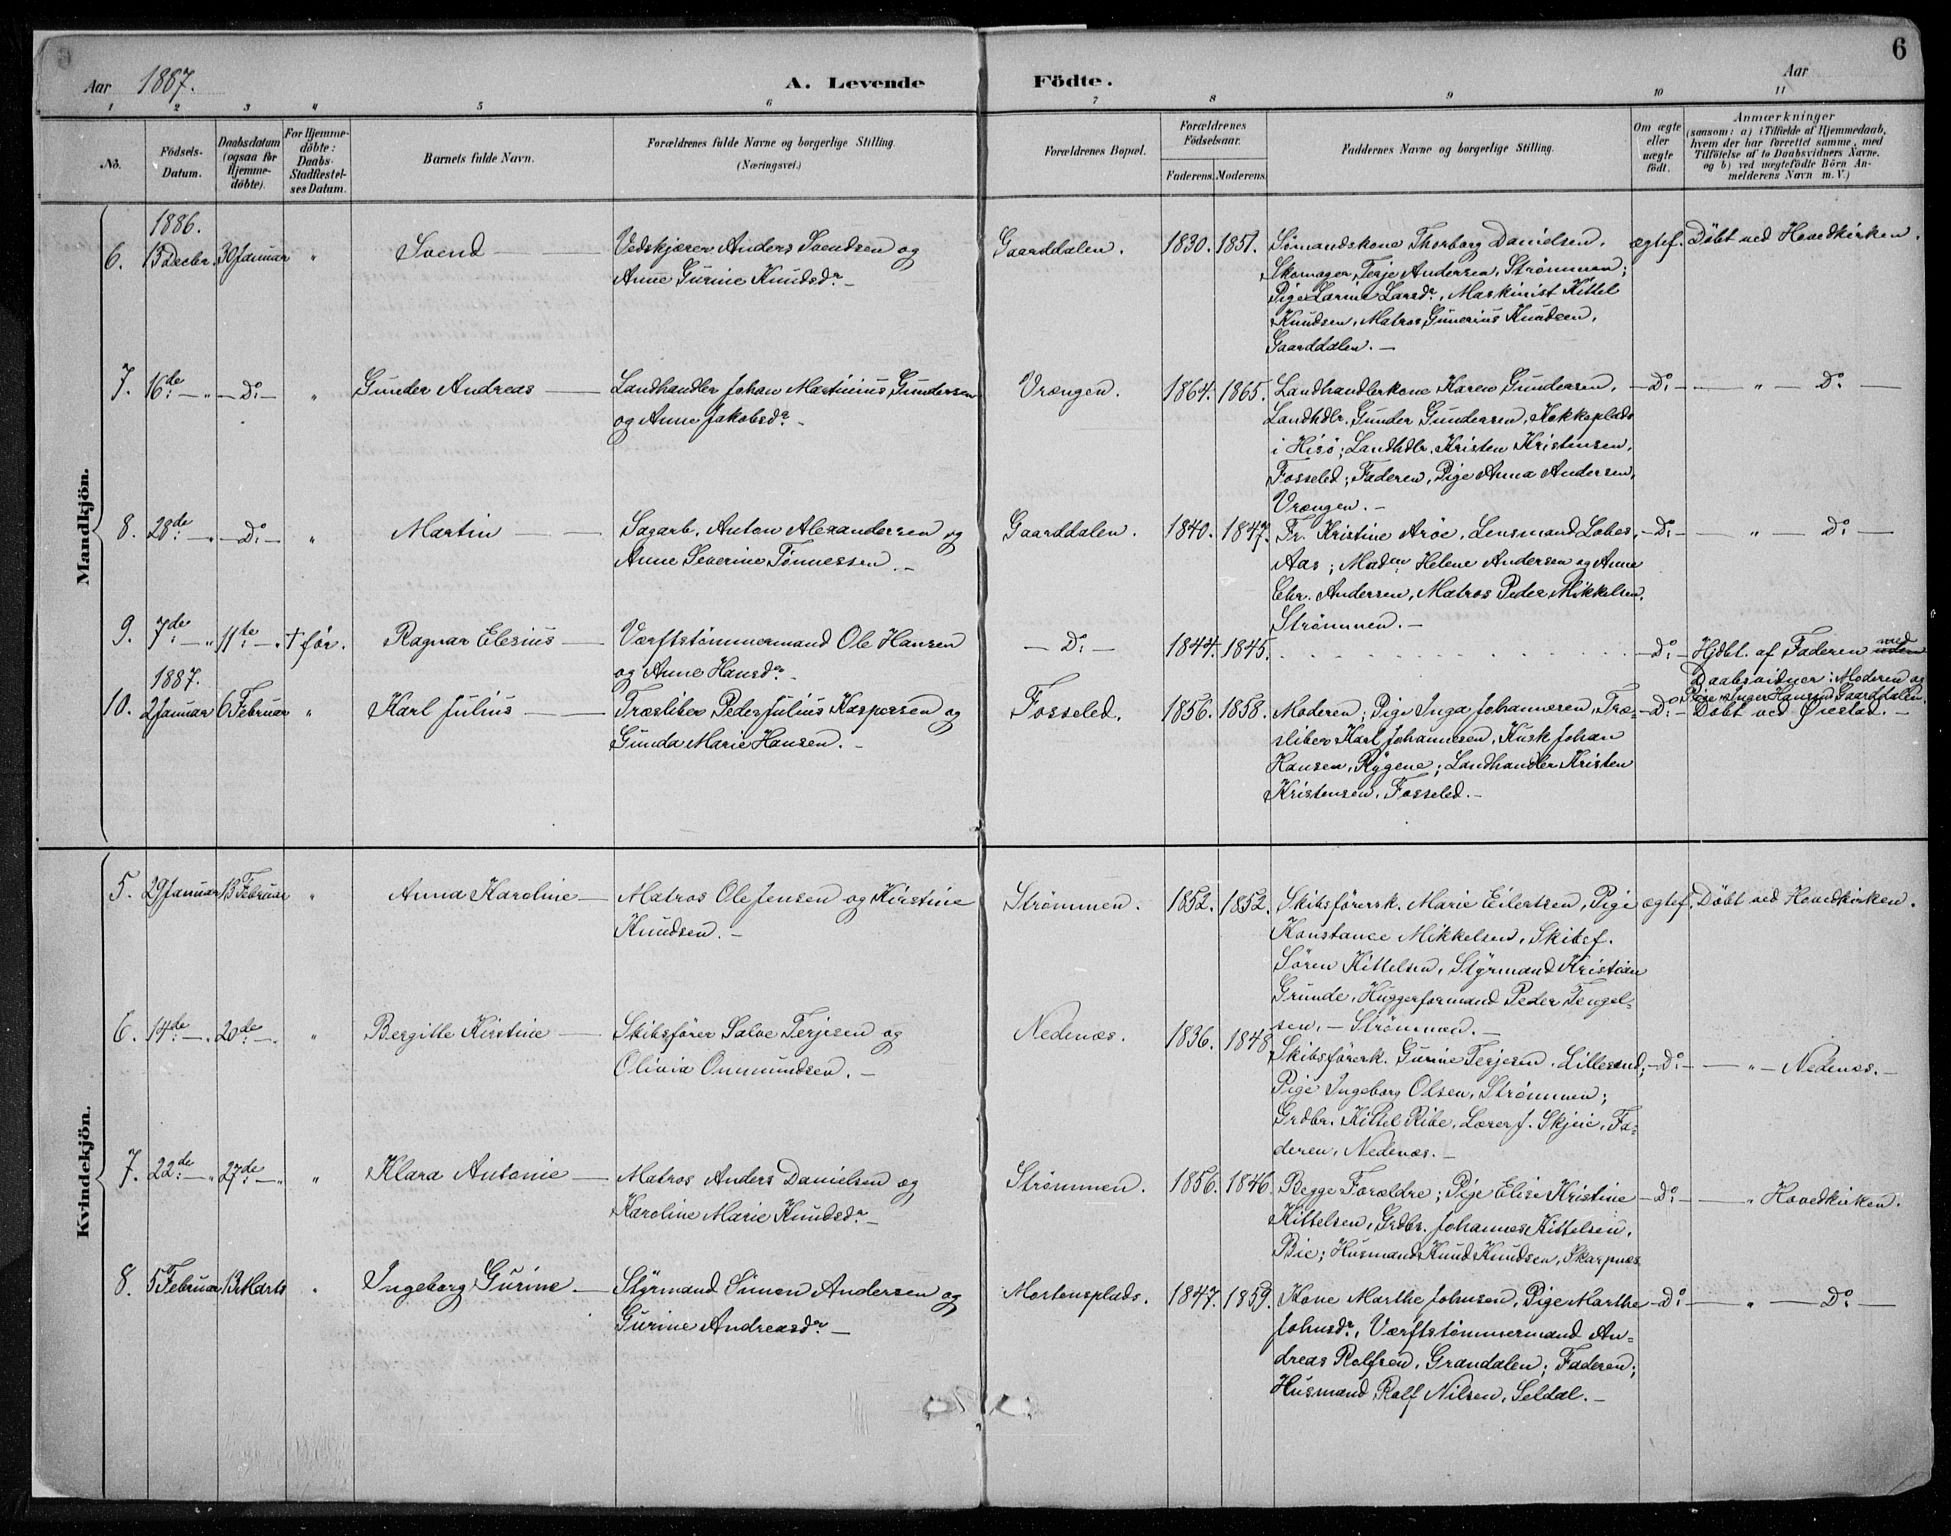 6
Aar 1887. A. Levende Födte. Aar
1 2 3 4 5 6 7 8 9 10 11
No. Födsels-Datum. Daabsdatum (ogsaa for Hjemmedöbte). For Hjemmedöbte: Daabs-Stadfæstelses Datum. Barnets fulde Navn. Forældrenes fulde Navne og borgerlige Stilling. (Næringsvei.) Forældrenes Bopæl. Forældrenes Födselsaar. Faderens. Moderens. Faddernes Navne og borgerlige Stilling. Om ægte eller uægte födt. Anmærkninger (saasom: a) i Tilfælde af Hjemmedaab, hvem der har forrettet samme, med Tilföielse af to Daabsvidners Navne. og b) ved uægtefödte Börn Anmelderens Navn m. V.)
Mandkjön.
1886.
6. 15 Decbr. 30 Januar " Svend — Vedskjærer Anders Svendsen og Gaarddalen. 1830. 1851. Sömandskone Thorborg Danielsen, ægtef. Döbt ved Hovedkirken.
Anne Gurine Knudsdr. — Skomager Terje Andersen, Strömmen;
Pige Larine Larsdr, Maskinist Kittel
Knudsen, Matros Gunerius Knudsen,
Gaarddalen. —
7. 16de — " — Do — " Gunder Andreas — Landhandler Johan Martinius Gundersen Vrængen. 1864. 1865. Landhandlerkone Karen Gundersen, — Do — — " — Do —
og Anne Jakobsdr. — Landhdlr. Gunder Gundersen, Kokkeplads
i Hisö; Landhdlr. Kristen Kristensen,
Fosseled; Faderen, Pige Anna Andersen,
Vrængen. —
8. 28de — " — Do — " Martin — Sagarb. Anton Alexandersen og Gaarddalen. 1840. 1847. Fr. Kristine Aröe, Lensmand Lobes, — Do — — " — Do —
Anne Severine Tönnessen. — Aas; Madm Helene Andersen og Anne
Chr. Andersen, Matros Peder Mikkelsen,
Strömmen. —
9. 7de — " 11te — " † før. Ragnar Elesius — Værftstömmermand Ole Hansen — Do — 1844. 1845. — Do — Hjdbt. af Faderen med
og Anne Hansdr. — Daabsvidner: Moderen og
Pige Inger Hansen, Gaarddalen.
1887.
10. 2 Januar 6 Februar " Karl Julius — Træsliber Peder Julius Kaspersen og Fosseled. 1856. 1858. Moderen; Pige Inga Johannesen, Træ- — Do — Döbt ved Öiestad. —
Gunda Marie Hansen. — sliber Karl Johannesen, Kusk Johan
Hansen, Rygene; Landhandler Kristen
Kristensen, Fosseled. —
Kvindekjön.
5. 29 Januar 13 Februar " Anna Karoline — Matros Ole Jensen og Kirstine Strömmen. 1852. 1852. Skibsförersk. Marie Eilertsen, Pige ægtef. Döbt ved Hovedkirken.
Knudsen. — Konstance Mikkelsen, Skibsf.
Sören Kittelsen, Styrmand Kristian
Grunde, Huggerformand Peder Tengel-
sen, — Strömmen. —
6. 14de — " 20de — " Bergitte Kirstine — Skibsförer Salve Terjesen og Nedenæs. 1836. 1848. Skibsförersk. Gurine Terjesen, Lillesand; — Do — — " — Nedenæs. —
Olivia Onmundsen. — Pige Ingeborg Olsen, Strömmen;
Grdbr. Kittel Ribe, Lærer J. Skjeie, Fa-
deren, Nedenæs. —
7. 22de — " 27de — " " Klara Antonie — Matros Anders Danielsen og Strömmen. 1856. 1846. Begge Forældre; Pige Elise Kristine — Do — — " Hovedkirken.
Karoline Marie Knudsdr. — Kittelsen, Grdbr. Johannes Kittelsen,
Bie; Husmand Knud Knudsen, Skarpnæs
8. 5 Februar 13 Marts " Ingeborg Gurine — Styrmand Simon Andersen og Mortensplads. 1847. 1859. Kone Marthe Johnsen, Pige Marthe — Do — — " — Do —
Gurine Andreasdr. — Johnsdr, Værftstömmermand An-
dreas Rolfsen, Grandalen; Faderen;
Husmand Rolf Nilsen, Seldal. —